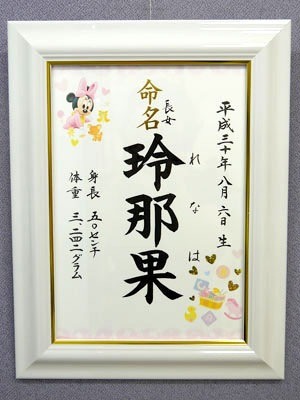 平成三十年八月六日生
命名
長女
玲那果
れなは
身長 五〇センチ
体重 三、二四二グラム